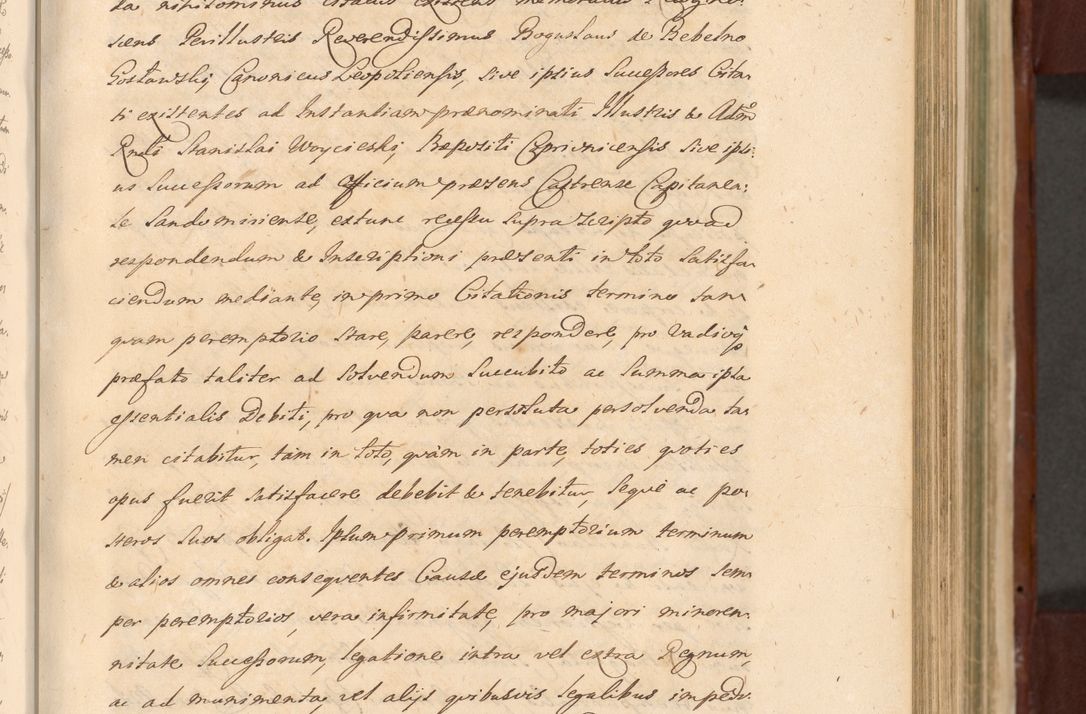 da nihilominus citatus existens memoratus Recogno:
scens Perillustris Reverendissimus Boguslaus de Bebelno
Gosławskj Canonicus Leopoliensis, sive ipsius Successores Cita:
ti existentes ad Instantiam prænominati Illustris & Adm̊
Rndi Stanislai Woycieskj, Præpositi Czprivnicensis sive ipsi:
us Successorum ad Officium præsens Castrense Capitanea:
le Sandomiriense, extunc recessu supra scripto qvoad
respondendum & Inscriptioni præsenti in toto satisfa:
ciendum mediante, in primo Citationis termino tan:
qvam peremptorio stare, parere, respondere, pro vadijs
præfato taliter ad solvendum succubito ac Summa ipsa
essentialis Debiti, pro qva non persoluta persolvenda ta:
men citabitur, tàm in toto, qvàm in parte, toties qvoties
opus fuerit satisfacere debebit & tenebitur, seqve ac po:
steros suos obligat. Ipsum primum peremptorium terminum
& alios omnes conseqventes Causæ ejusdem terminos sem:
per peremptorios, vera infirmitate, pro majori minoren:
nitate Successorum, legatione intra vel extra Regnum,
ac ad munimenta, vel alijs qvibusvis legalibus impedi: